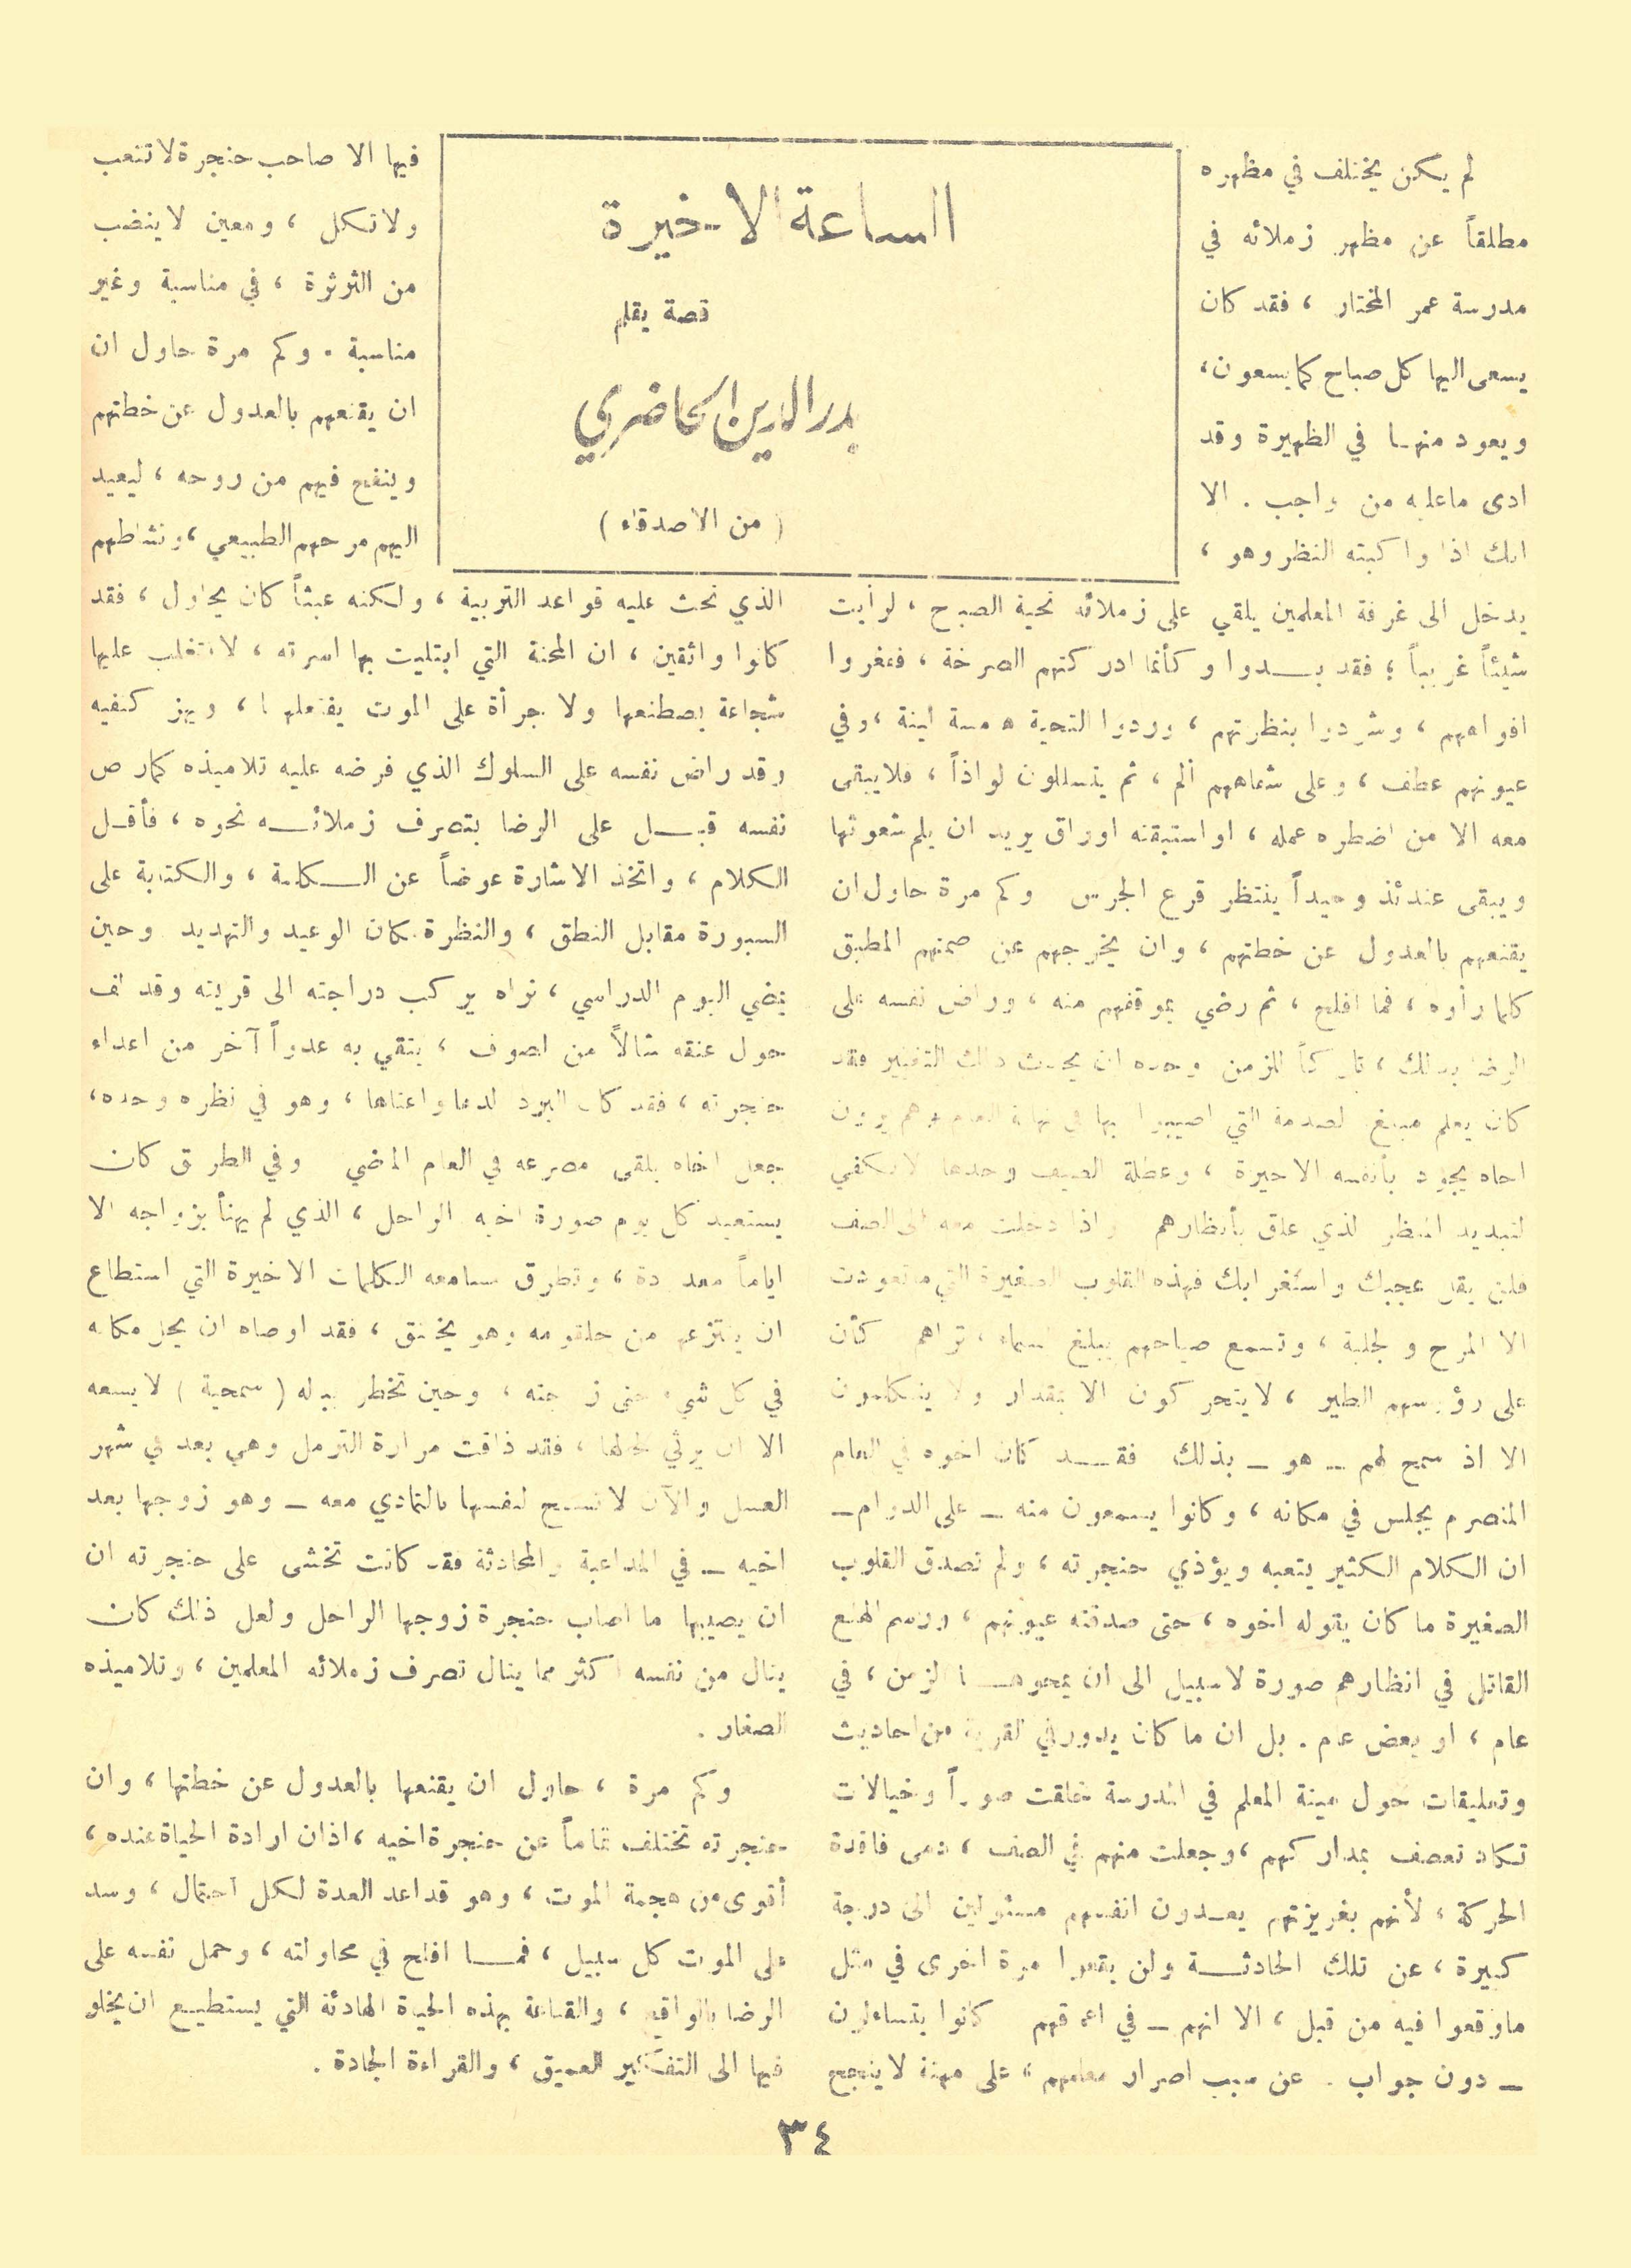 الساعة الاخيرة
قصة بقلم
بدر الدين الحاضري
( من الاصدقاء )
لم يكن يختلف في مظهره
مطلقاً عن مظهر زملائه في
مدرسة عمر المختار ، فقد كان
يسعى اليها كل صباح كما يسعون ،
ويعود منها في الظهيرة وقد
ادى ماعليه من واجب . الا
انك اذا واكبته النظر وهو ،
يدخل الى غرفة المعلمين يلقي على زملائه تحية الصبح ، لرأيت
شيئاً غريباً ؛ فقد بدوا وكأنما ادركتهم الصرخة ، ففغروا
افواههم ، وشردوا بنظرتهم ، وردوا التحية همسة لينة ، وفي
عيونهم عطف ، وعلى شفاههم ألم ، ثم يتسللون لواذاً ، فلايبقى
معه الا من اضطره عمله ، او استبقته اوراق يريد ان يلم شعوثها
ويبقى عندئذ وحيداً ينتظر قرع الجرس وكم مرة حاول ان
يقنعهم بالعدول عن خطتهم ، وان يخرجهم عن صمتهم المطبق
كلما رأوه ، فما افلح ، ثم رضي بموقفهم منه ، وراض نفسه على
الرضا بذلك ، تاركاً للزمن وحده ان يحدث ذلك التغيير فقد
كان يعلم مبلغ الصدمة التي اصيبوا بها في نهاية العام وهم يرون
اخاه يجود بأنفسه الاخيرة ، وعطلة الصيف وحدها لاتكفي
لتبديد المنظر الذي علق بأنظارهم واذا دخلت معه الى الصف
فلن يقل عجبك واستغرابك فهذه القلوب الصغيرة التي ماتعودت
الا المرح والجلبة ، وتسمع صياحهم يبلغ سماء ، تراهم كأن
على رؤوسهم الطير ، لايتحركون الا بمقدار ولا يتكلمون
الا اذ سمح لهم ــ هو ــ بذلك فقد كان اخوه في العام
المنصرم يجلس في مكانه ، وكانوا يسمعون منه ــ على الدوام ــ
ان الكلام الكثير يتعبه ويؤذي حنجرته ، ولم تصدق القلوب
الصغيرة ما كان يقوله اخوه ، حتى صدقته عيونهم ، ورسم الهلع
القاتل في انظارهم صورة لاسبيل الى ان يمحوها الزمن ، في
عام ، او بعض عام . بل ان ما كان يدور في القرية من احاديث
وتعليقات حول ميتة المعلم في المدرسة خلقت صوراً وخيالات
تكاد تعصف بمداركهم ، وجعلت منهم في الصف ، دمى فاقدة
الحركة ، لأنهم بغريزتهم يعدون انفسهم مسئولين الى درجة
كبيرة ، عن تلك الحادثة ولن يقعوا مرة اخرى في مثل
ماوقعوا فيه من قبل ، الا انهم ــ في اعماقهم كانوا يتساءلون
ــ دون جواب . عن سبب اصرار معلمهم ، على مهنة لاينجح
فيها الا صاحب حنجرة لاتتعب
ولاتكل ، ومعين لاينضب
من الثرثرة ، في مناسبة وغير
مناسبة . وكم مرة حاول ان
ان يقنعهم بالعدول عن خطتهم
وينفح فيهم من روحه ، ليعيد
اليهم مرحهم الطبيعي ، ونشاطهم
الذي تحث عليه قواعد التربية ، ولكنه عبثاً كان يحاول ، فقد
كانوا واثقين ، ان المحنة التي ابتليت بها اسرته ، لاتتغلب عليها
شجاعة يصطنعها ولا جرأة على الموت يفتعلها ، ويهز كتفيه
وقد راض نفسه على السلوك الذي فرضه عليه تلاميذه كمارض
نفسه قبل على الرضا بتصرف زملائه نحوه ، فأقل
الكلام ، واتخذ الاشارة عوضاً عن الكلمة ، والكتابة على
السبورة مقابل النطق ، والنظرة مكان الوعيد والتهديد وحين
يقضي اليوم الدراسي ، تراه يركب دراجته الى قريته وقد لف
حول عنقه شالاً من الصوف ، يتقي به عدواً آخر من اعداء
حنجرته ، فقد كان البرد الدها واعتاها ، وهو في نظره وحده ،
جعل اخاه يلقى مصرعه في العام الماضي وفي الطريق كان
يستعيد كل يوم صورة اخيه الراحل ، الذي لم يهنأ بزواجه الا
اياماً معدودة ، وتطرق مسامعه الكلمات الاخيرة التي استطاع
ان ينتزعها من حلقومه وهو يختنق ، فقد اوصاه ان يحل مكانه
في كل شيء حتى زوجته ، وحين تخطر بباله ( سمحية ) لايسعه
الا ان يرثي لحالها ، فقد ذاقت مرارة الترمل وهي بعد في شهر
العسل والآن لاتسمح لنفسها بالتمادي معه ــ وهو زوجها بعد
اخيه ــ في المداعبة والمحادثة فقد كانت تخشى على حنجرته ان
ان يصيبها ما اصاب حنجرة زوجها الراحل ولعل ذلك كان
ينال من نفسه اكثر مما ينال تصرف زملائه المعلمين ، وتلاميذه
الصغار .
وكم مرة ، حاول ان يقنعها بالعدول عن خطتها ، وان
حنجرته تختلف تماماً عن حنجرة اخيه ، اذ ان ارادة الحياة عنده ،
أقوى من هجمة الموت ، وهو قد اعد العدة لكل احتمال ، وسد
على الموت كل سبيل ، فما افلح في محاولته ، وحمل نفسه على
الرضا بالواقع ، والقناعة بهذه الحياة الهادئة التي يستطيع ان يخلو
فيها الى التفكير العميق ، والقراءة الجادة .
٣٤